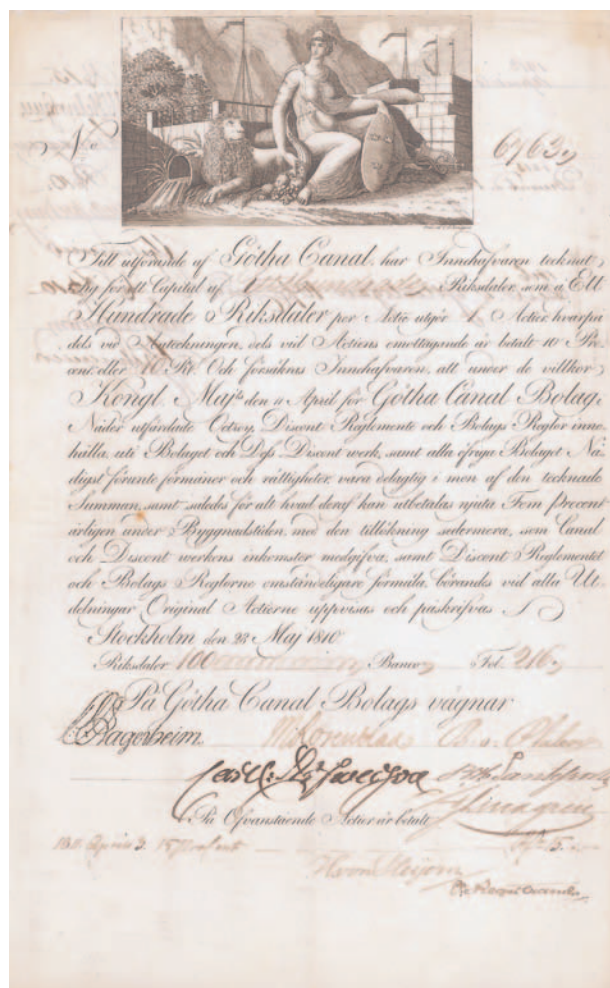 No 6763
Till utförande af Götha Canal, har Innehafvaren tecknat
Sig för ett Capital af Ett Hundrade Riksdaler, som à Ett
Hundrade Riksdaler per Actie utgör 1 Actier, hvarpå
dels vid Anteckningen, dels vid Actiens emottagande är betalt 10 Pro-
cent, eller 10 Rd. Och försäkras Innehafvaren, att under de villkor
Kongl. Majt. den 11 April för Götha Canal Bolag, i
Nåder utfärdade Octroy, Discont Reglemente och Bolags Reglor inne-
hålla, uti Bolaget och Dess Discont werk, samt alla öfriga Bolaget Nå-
digst förunte förmåner och rättigheter, vara delagtig i mon af den tecknade
Summan, samt således för allt hvad deraf kan utbetalas njuta Fem procent
årligen under Byggnadstiden, med den tillökning sedermera, som Canal
och Discont werkens inkomster medgifva, samt Discont Reglementet
och Bolags Reglorne omständeligare förmäla, börandes vid alla Ut-
delningar Original Actierne uppvisas och påskrifvas
Stockholm den 23 Maj 1810
Riksdaler 100 Banco Fol. 216
På Götha Canal Bolags vägnar
Lagerheim
På Ofvanstående Actier är betalt
April 3. 15